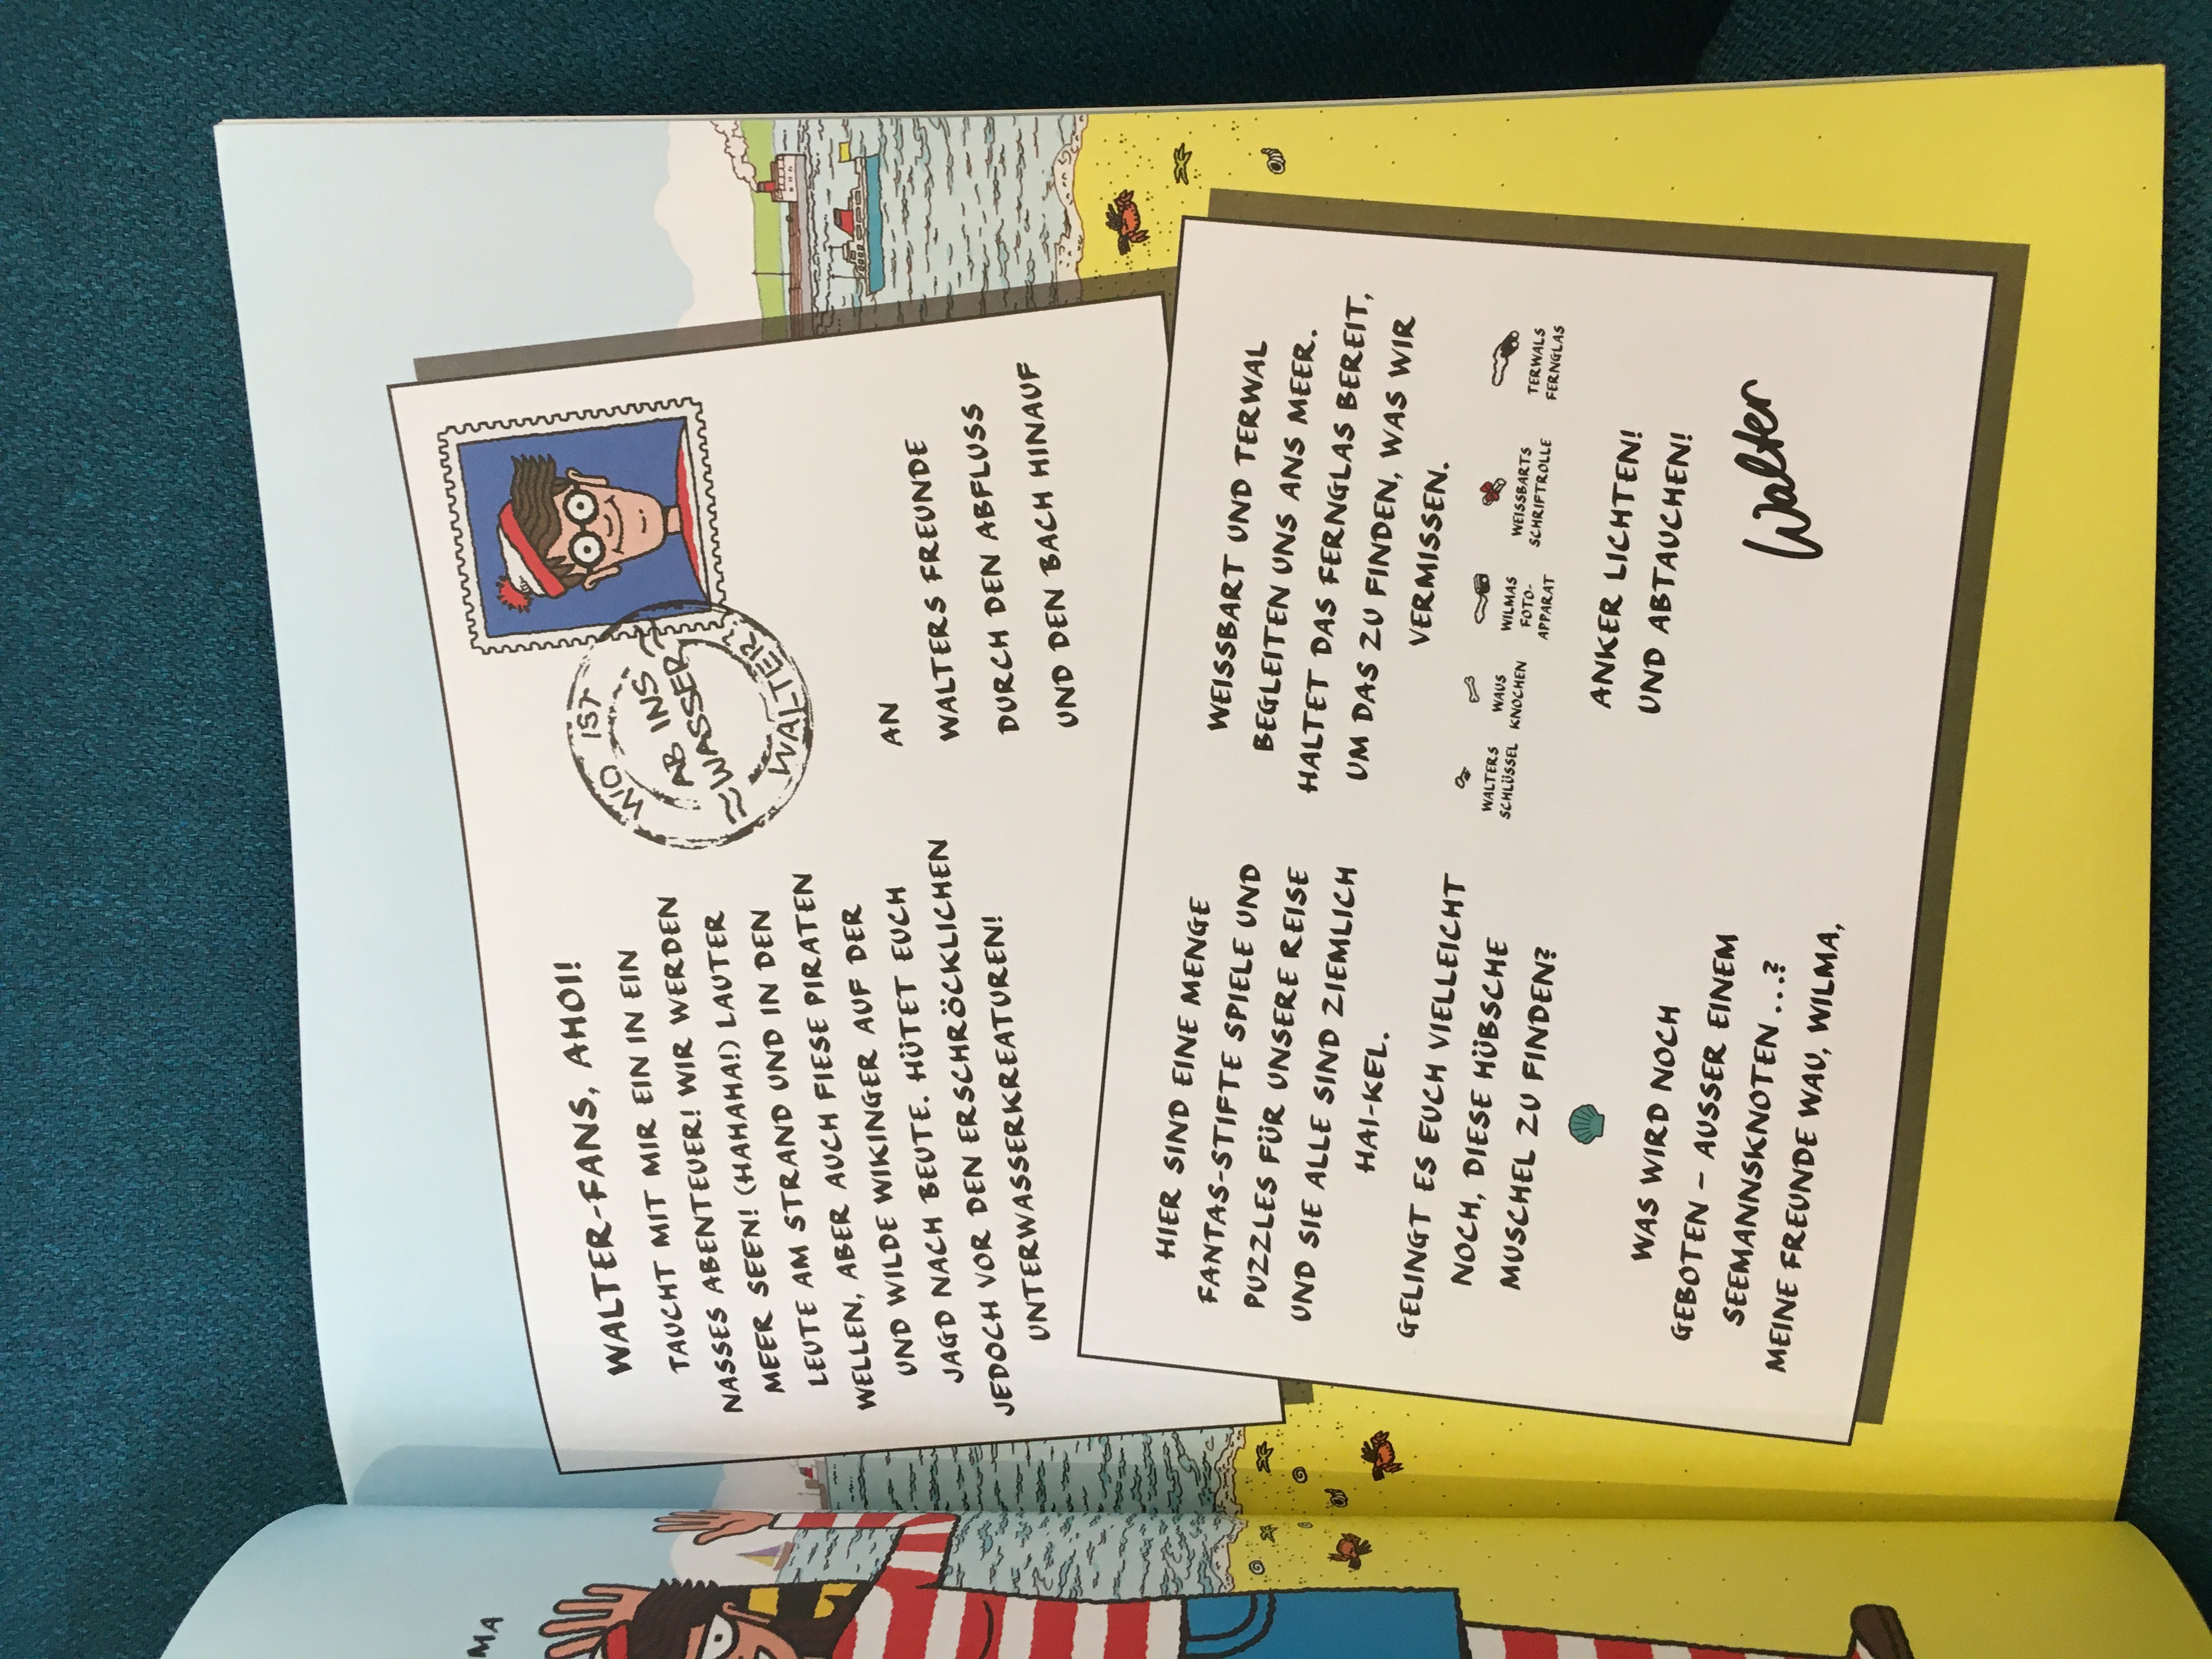 MA
WALTER-FANS, AHOI!
TAUCHT MIT MIR EIN IN EIN
NASSES ABENTEUER! WIR WERDEN
MEER SEEN! (HAHAHA!) LAUTER
LEUTE AM STRAND UND IN DEN
WELLEN, ABER AUCH FIESE PIRATEN
UND WILDE WIKINGER AUF DER
JAGD NACH BEUTE. HÜTET EUCH
JEDOCH VOR DEN ERSCHRÖCKLICHEN
UNTERWASSERKREATUREN!
WO IST
AB INS
WASSER
WALTER?
AN
WALTERS FREUNDE
DURCH DEN ABFLUSS
UND DEN BACH HINAUF
HIER SIND EINE MENGE
FANTAS-STIFTE SPIELE UND
PUZZLES FÜR UNSERE REISE
UND SIE ALLE SIND ZIEMLICH
HAI-KEL.
GELINGT ES EUCH VIELLEICHT
NOCH, DIESE HÜBSCHE
MUSCHEL ZU FINDEN?
WAS WIRD NOCH
GEBOTEN – AUSSER EINEM
SEEMANNSKNOTEN ...?
MEINE FREUNDE WAU, WILMA,
WEISSBART UND TERWAL
BEGLEITEN UNS ANS MEER.
HALTET DAS FERNGLAS BEREIT,
UM DAS ZU FINDEN, WAS WIR
VERMISSEN.
WALTERS
SCHLÜSSEL
WAUS
KNOCHEN
WILMAS
FOTO-
APPARAT
WEISSBARTS
SCHRIFTROLLE
TERWALS
FERNGLAS
ANKER LICHTEN!
UND ABTAUCHEN!
Walter